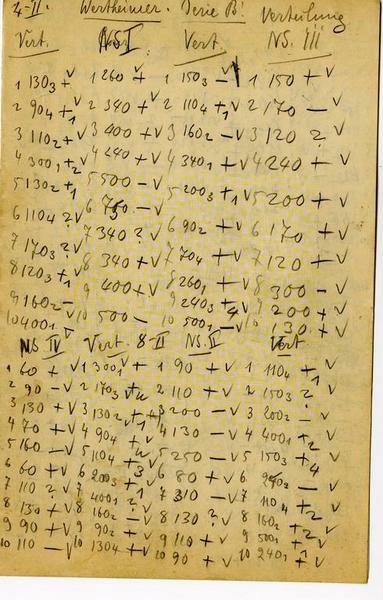 4-II. Wertheimer. Serie B! Verteilung
Vert. NS I Vert. NS. III
1 130₃ +√ 1 260 + 1 150₃ —√ 1 150 + √
2 90₄ +₁ 2 340 +√ 2 110₄ +₁√ 2 170 — √
3 110₂ +√ 3 400 +√ 3 160₂ —√ 3 120 ? √
4 300₁ +₂√ 4 240 +√ 4 340₁ +√ 4 240 + √
5 130₂ +₁ 5 500 —√ 5 200₃ +₁√ 5 200 + √
6 110₄ ?√ 6 750 —√ 6 90₂ +√ 6 170 + √
7 170₃ ?√ 7 340 ?√ 7 70₄ +√ 7 120 + √
8 120₃ +₁ 8 340 +√ 8 260₁ +√ 8 300 — √
9 160₂ — 9 400 +√ 9 240₃ +₄ 9 200 + √
10 400₁ √ 10 500 — 10 500₁ —√ 10 130 + √
NS IV Vert. 8-II NS. II Vert
1 60 +√ 1 300₁ +√ 1 90 +√ 1 110₄ +₁√
2 90 —√ 2 170₃ 2 110 +√ 2 150₃ ?
3 130 +√ 3 130₂ 3 200 —√ 3 200₂ —
4 70 +√ 4 90₄ 4 130 —√ 4 400₁ +₂
5 160 —√ 5 110₄ +₃ 5 250 —√ 5 150₃ +₄
6 60 +√ 6 200₃ +₁ 6 80 +√ 6 —√
7 110 ?√ 7 400₁ ? 7 310 —√ 7 110₄ +₂
8 130 +√ 8 160₂ —√ 8 130 ?√ 8 160₂ +₂
9 90 +√ 9 90₂ +√ 9 110 +√ 9 500₁
10 110 —√ 10 130₄ +√ 10 90 +√ 10 240₁ +√